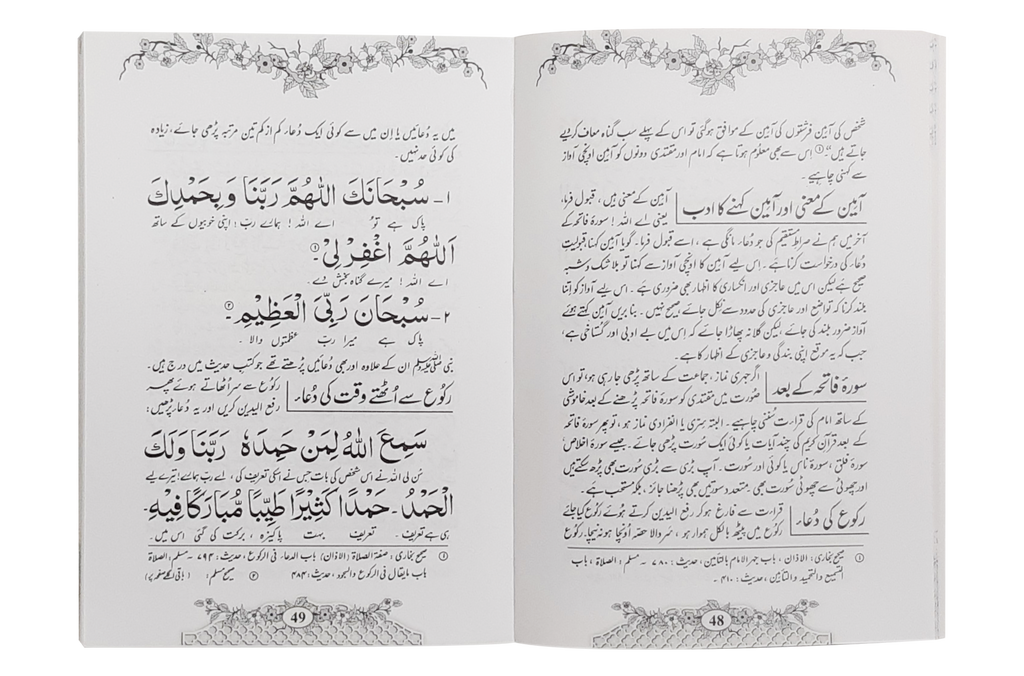 شخص کی آمین فرشتوں کی آمین کے موافق ہوگئی تو اس کے پہلے سب گناہ معاف کردیے
جاتے ہیں“۔① اس سے بھی معلوم ہوتا ہے کہ امام اور مقتدی دونوں کو آمین اونچی آواز
سے کہنی چاہیے۔
آمین کے معنی اور آمین کہنے کا ادب
آمین کے معنی ہیں، قبول فرما،
یعنی اے اللہ! سورۂ فاتحہ کے
آخر میں ہم نے صراطِ مستقیم کی جو دُعا مانگی ہے، اسے قبول فرما۔ گویا آمین کہنا قبولیت
دُعا کی درخواست کرنا ہے۔ اس لیے آمین کا اونچی آواز سے کہنا تو بلاشک وشبہ
صحیح ہے لیکن اس میں عاجزی اور انکساری کا اظہار بھی ضروری ہے۔ اس لیے آواز کو اتنا
بلند کرنا کہ تواضع اور عاجزی کی حدود سے نکل جائے، صحیح نہیں۔ بنا بریں آمین کہتے ہوئے
آواز ضرور بلند کی جائے لیکن گلا نہ پھاڑا جائے کہ اس میں بے ادبی اور گستاخی ہے،
جب کہ یہ موقع اپنی بندگی و عاجزی کے اظہار کا ہے۔
سورۂ فاتحہ کے بعد
اگر جہری نماز، جماعت کے ساتھ پڑھی جا رہی ہو، تو اس
صورت میں مقتدی کو سورۂ فاتحہ پڑھنے کے بعد خاموشی
کے ساتھ امام کی قراءت سننی چاہیے۔ البتہ سِرّی یا انفرادی نماز ہو، تو پھر سورۂ فاتحہ
کے بعد قرآن کریم کی چند آیات یا کوئی ایک سُورت پڑھی جائے۔ جیسے سورۂ اخلاص،
سورۂ فلق، سورۂ ناس یا کوئی اور سُورت۔ آپ بڑی سے بڑی سُورت بھی پڑھ سکتے ہیں
اور چھوٹی سے چھوٹی سُورت بھی۔ متعدد سورتیں بھی پڑھنا جائز، بلکہ مستحب ہے۔
رکوع کی دُعاء
قراءت سے فارغ ہو کر رفع الیدین کرتے ہوئے رکوع کیا جائے
رکوع میں پیٹھ بالکل ہموار ہو، سر والا حصّہ اونچا ہو نہ نیچا۔ رکوع
① صحیح بخاری: الاذان، باب جہر الامام بالتأمین، حدیث: ۷۸۰۔ مسلم: الصلاة، باب
التسمیع والتحمید والتأمین، حدیث: ۴۱۰۔
48
میں یہ دُعائیں یا ان میں سے کوئی ایک دُعاء کم از کم تین مرتبہ پڑھی جائے، زیادہ
کی کوئی حد نہیں۔
۱- سُبْحَانَكَ اللّٰهُمَّ رَبَّنَا وَبِحَمْدِكَ
پاک ہے تُو اے اللہ! ہمارے رب! اپنی خوبیوں کے ساتھ
اَللّٰهُمَّ اغْفِرْ لِيْ۔①
اے اللہ! میرے گناہ بخش دے۔
۲- سُبْحَانَ رَبِّيَ الْعَظِيْمِ۔②
پاک ہے میرا ربّ عظمتوں والا۔
نبی ﷺ ان کے علاوہ اور بھی دُعائیں پڑھتے تھے جو کتب حدیث میں درج ہیں۔
رکوع سے اُٹھتے وقت کی دُعاء
رکوع سے سر اٹھاتے ہوئے پھر
رفع الیدین کریں اور یہ دُعاء پڑھیں:
سَمِعَ اللّٰهُ لِمَنْ حَمِدَهٗ رَبَّنَا وَلَكَ
سُن لی اللہ نے اس شخص کی بات جس نے اسکی تعریف کی، اے ربّ ہمارے! تیرے لیے
الْحَمْدُ۔ حَمْدًا كَثِيْرًا طَيِّبًا مُّبَارَكًا فِيْهِ۔
ہی ہے تعریف۔ تعریف بہت پاکیزہ، برکت کی گئی اس میں۔
① صحیح بخاری، صفة الصلاة (الاذان) باب الدعاء فی الرکوع، حدیث: ۷۹۴۔ مسلم: الصلاة
باب مایقال فی الرکوع والسجود، حدیث: ۴۸۴ ② صحیح مسلم: (باقی اگلے صفحہ پر)
49